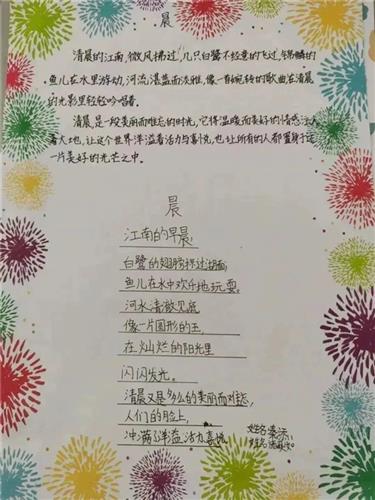 晨
清晨的江南,微风拂过,几只白鹭不经意的飞过,
鱼儿在水里游动,河流湛蓝而淡雅,像一首婉转的歌曲在清晨
的光影里轻轻吟唱着。
清晨,是一段美丽而难忘的时光,它将温暖而美好的情感注入
着大地,让这个世界洋溢着活力与喜悦,也让所有的人都置身于这
一片美好的光芒之中。
晨
江南的早晨,
白鹭的翅膀掠过湖面,
鱼儿在水中欢乐地玩耍。
河水清澈见底
像一片圆形的玉
在灿烂的阳光里
闪闪发光。
清晨又是多么的美丽而难忘,
人们的脸上,
冲满了洋溢活力喜悦
姓名
姓名